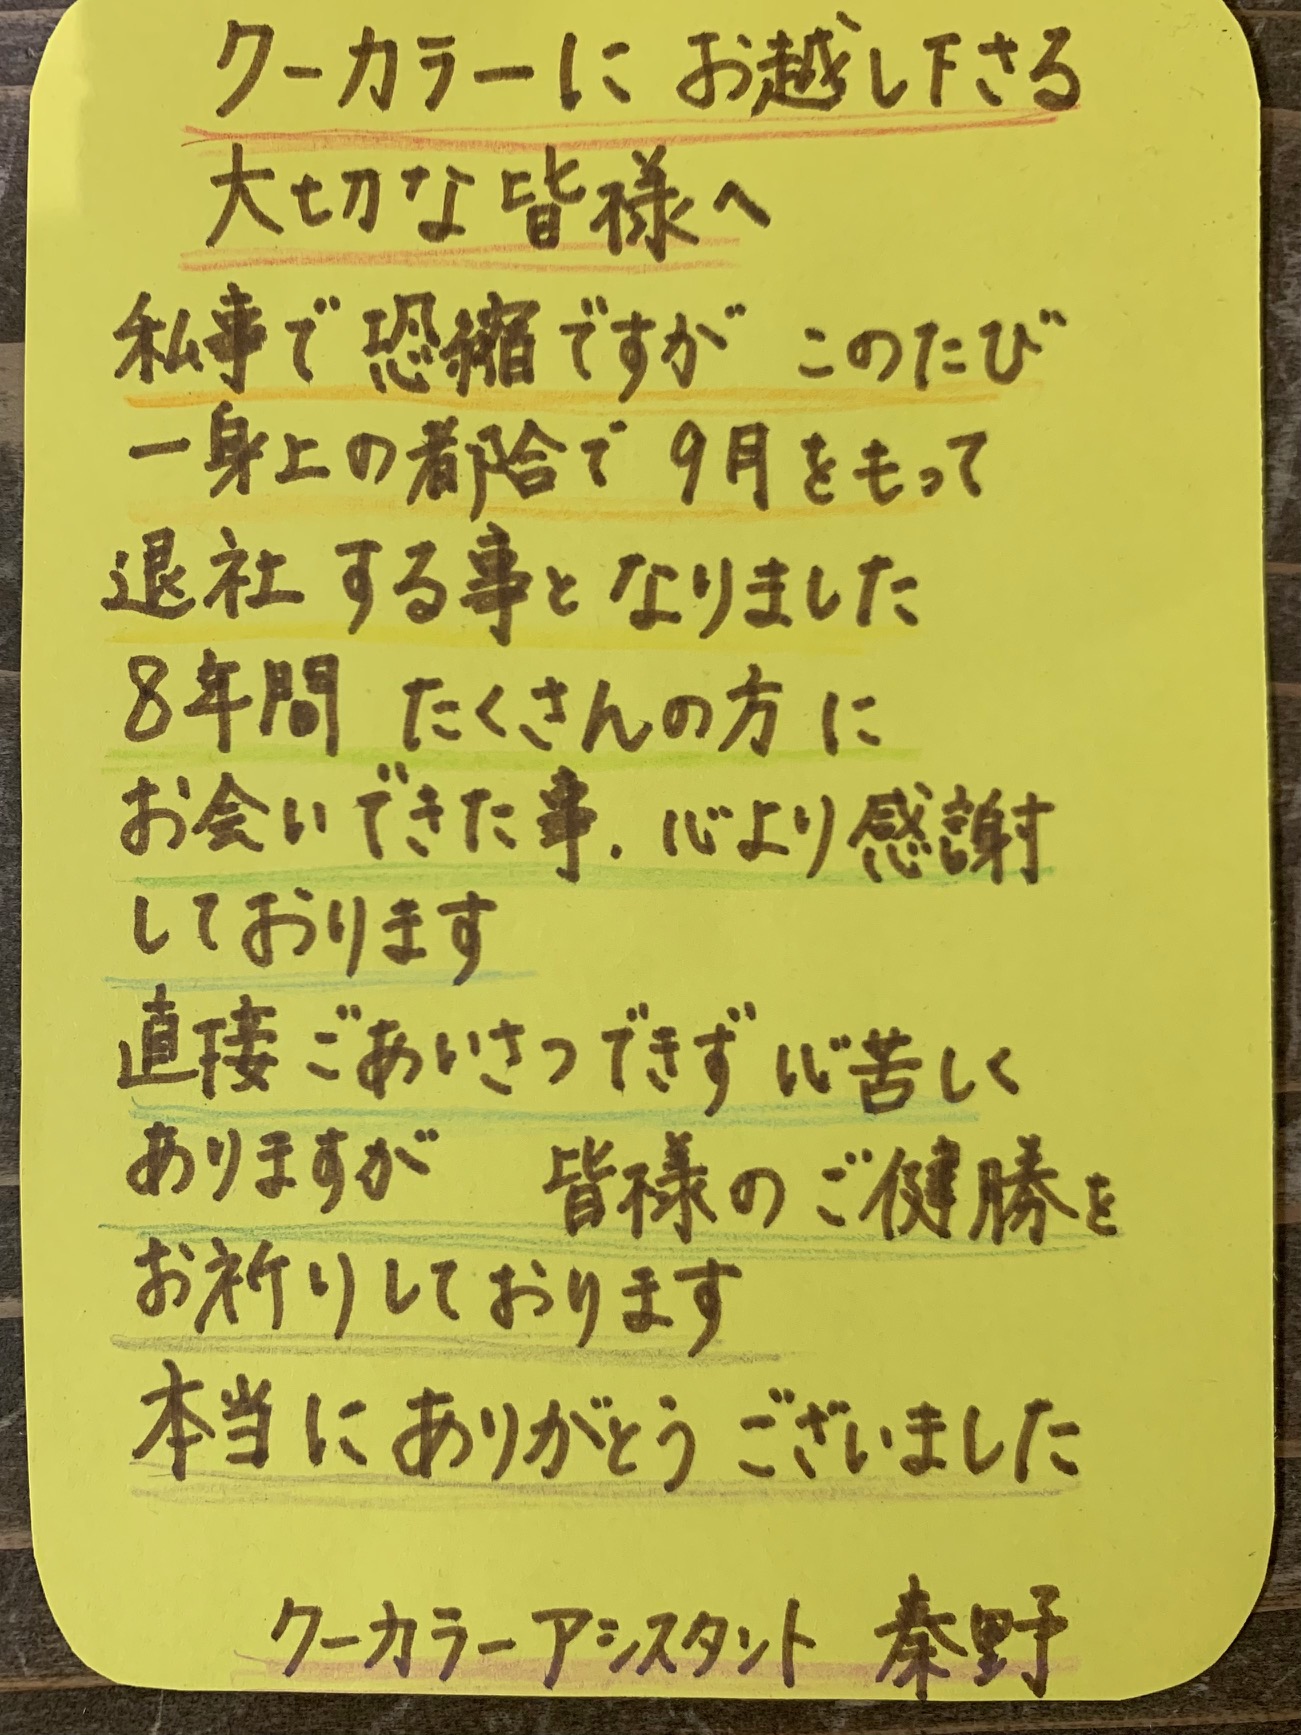 クーカラーに お越し下さる
大切な皆様へ
私事で恐縮ですが このたび
一身上の都合で 9月をもって
退社する事となりました
8年間 たくさんの方に
お会いできた事、心より感謝
しております
直接ごあいさつできず 心苦しく
ありますが 皆様のご健勝を
お祈りしております
本当にありがとうございました
クーカラーアシスタント 秦野